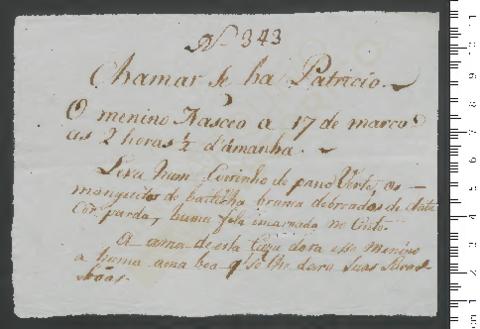 Nº 343
Chamar se ha Patricio.
O menino Nasceo a 17 de março
as 2 horas ½ d'ámanha.
Leva hum Coeirinho de pano Verde, os
manguitos de batilha branca debroados de
Cor parda, huma fita incarnada no Cinto.
A ama de esta Caza dara esse menino
a huma ama boa q se lhe dara Suas